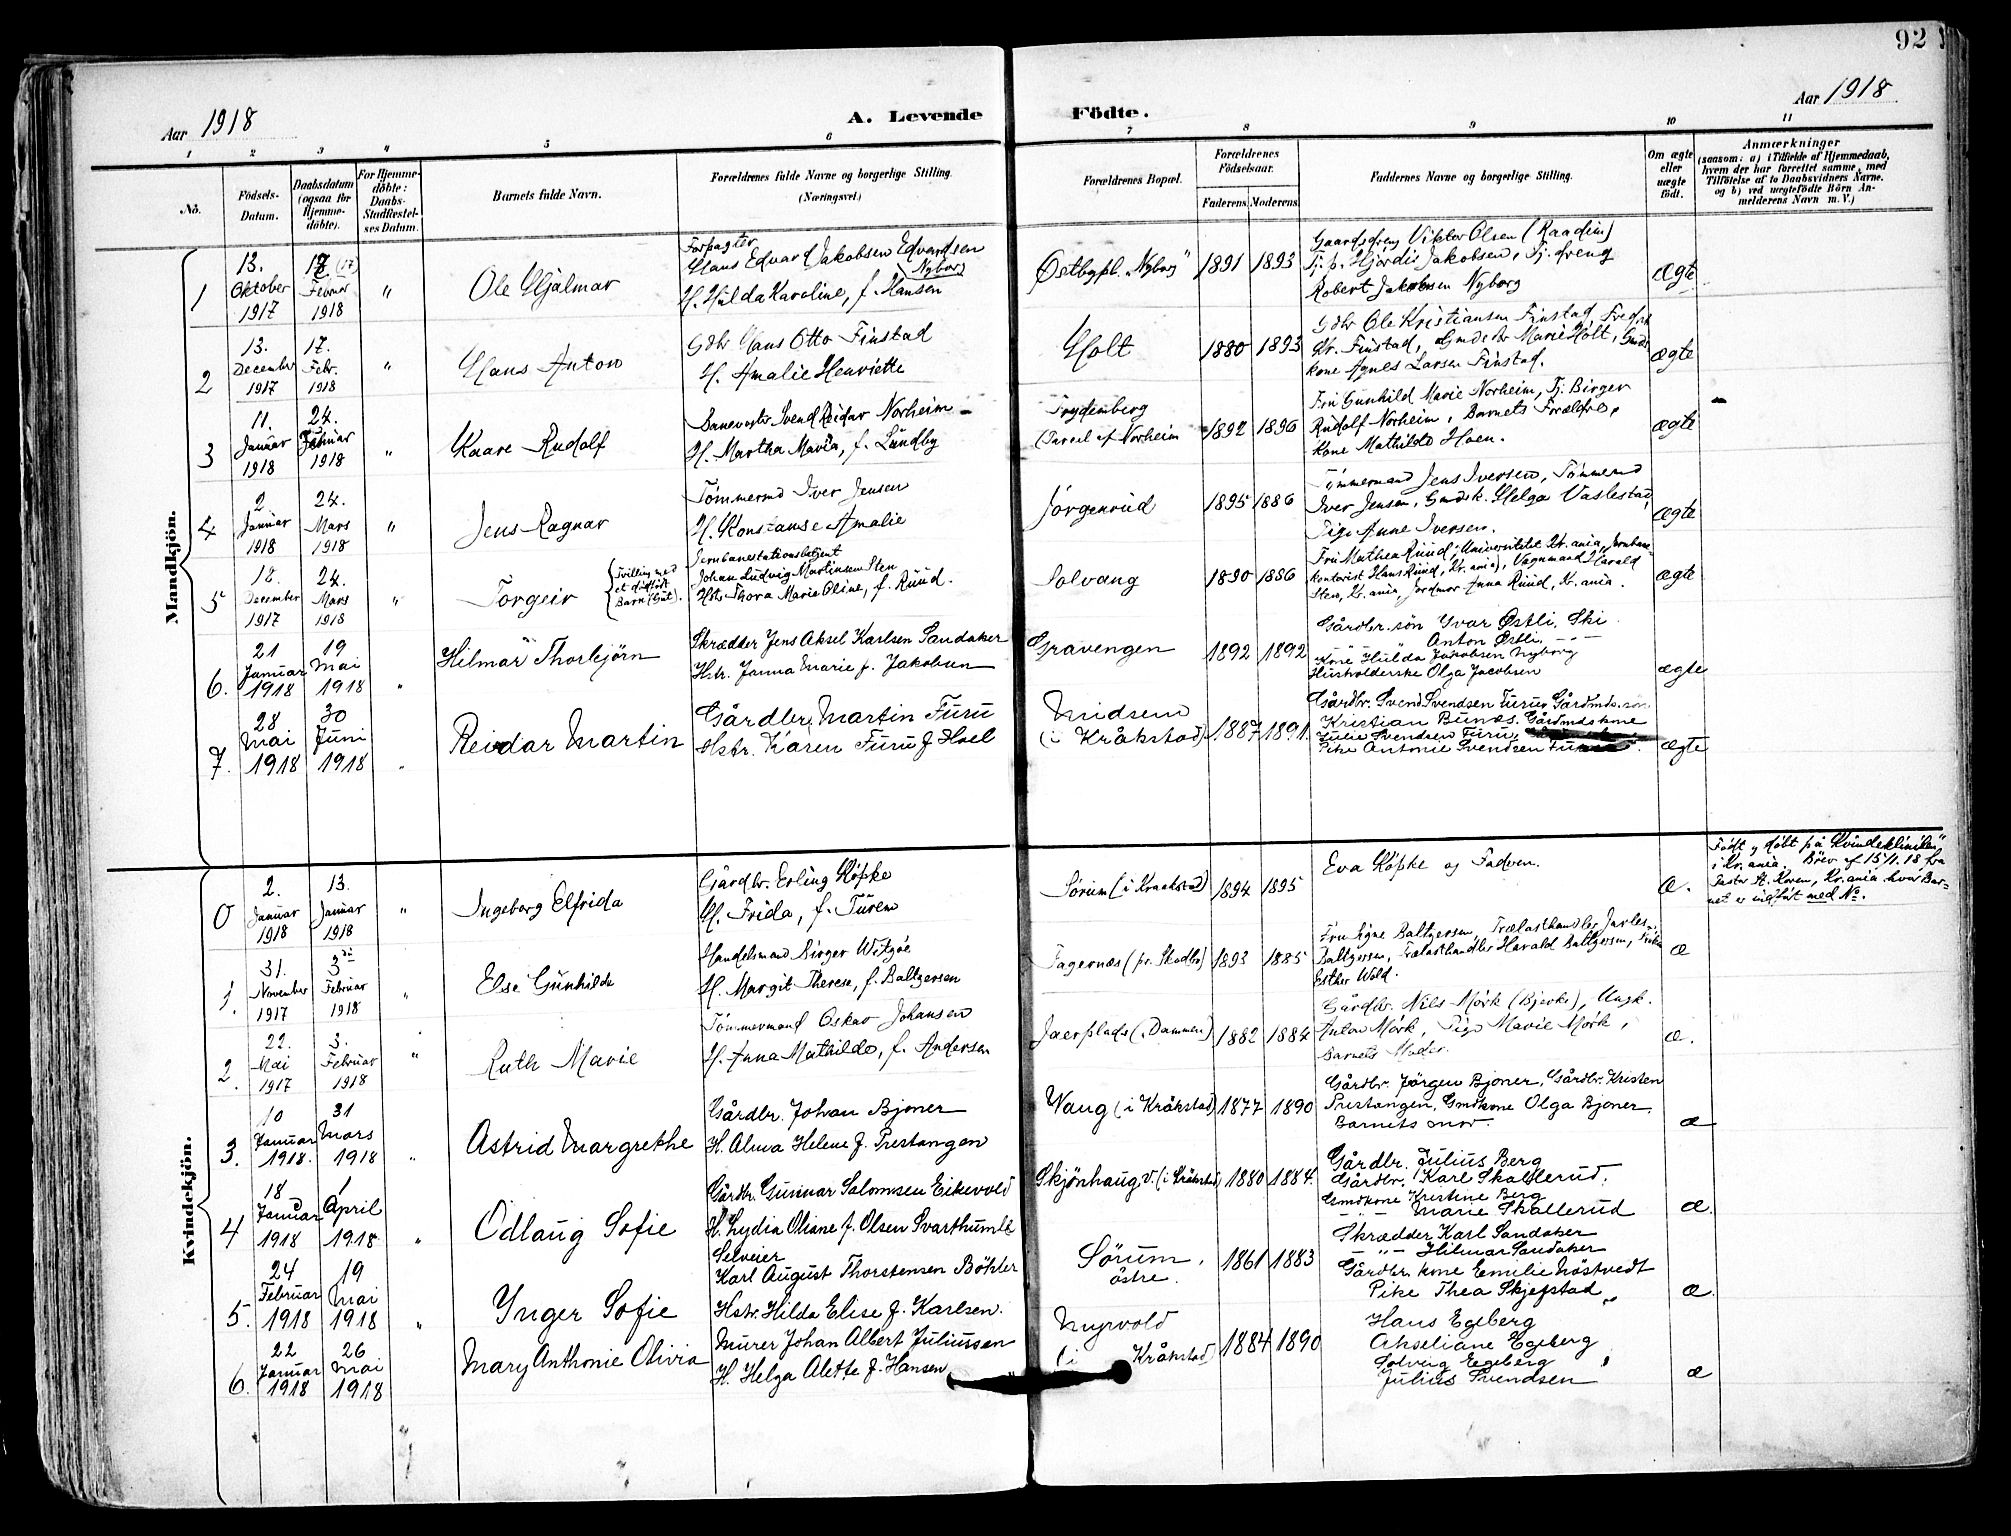 92
Aar 1918
A. Levende
Födte.
Aar 1918
1 2 3 4 5 6 7 8 9 10 11
Nô.
Födsels-
Datum.
Daabsdatum
(ogsaa for
Hjemme-
döbte).
For Hjemme-
döbte:
Daabs-
Stadfæstel-
ses Datum.
Barnets fulde Navn.
Forældrenes fulde Navne og borgerlige Stilling.
(Næringsvei.)
Forældrenes Bopæl.
Forældrenes
Födselsaar.
Faderens. Moderens.
Faddernes Navne og borgerlige Stilling.
Om ægte
eller
uægte
födt.
Anmærkninger
(saasom: a) i Tilfælde af Hjemmedaab,
hvem der har forrettet samme, med
Tilföielse af to Daabsvidners Navne.
og b) ved uægtefödte Börn An-
melderens Navn m. V.)
Mandkjön.
1
13.
Oktober
1917
17 (17)
Februar
1918
"
Ole Hjalmar
Forpagter
Hans Edvard Jakobsen Edvardsen
(Nyborg)
H. Hulda Karoline, f. Hansen
Østbypl. "Nyborg"
1891 1893
Gaardsdreng Viktor Olsen (Raadim)
Tj. p. Hjördis Jakobsen, Tj. dreng
Robert Jakobsen Nyborg
ægte
2
13.
December
1917
17.
Febr.
1918
"
Hans Anton
Gdbr Hans Otto Finstad
H. Amalie Henriette
Holt
1880 1893
Gdbr Ole Kristiansen Finstad, Fredrik
Kr. Finstad, Gmdsdtr Marie Holt, Gmds.
kone Agnes Larsen Finstad.
ægte
3
11.
Januar
1918
24.
Februar
1918
"
Kaare Rudolf
Banevogter Svend Reidar Norheim
H. Martha Maria, f. Lundby
Frydenberg
(Parcel af Norheim
1892 1896
Fru Gunhild Marie Norheim, Tj. Birger
Rudolf Norheim, Barnets Forældre,
Kone Mathilde Hoen.
ægte
4
2
Januar
1918
24.
Mars
1918
"
Jens Ragnar
Tömmermd Iver Jensen
H. Konstanse Amalie
Jörgenrud
1895 1886
Tömmermand Jens Iversen, Tömmermd
Iver Jensen, Gmdsk. Helga Vaslestad,
Pige Anne Iversen.
ægte
5
18.
December
1917
24.
Mars
1918
"
Torgeir
(Tvilling med
et dödfödt
Barn (Gut).
Jernbanestationsbetjent
Johan Ludvig Martinsen Sten
Hstr Thora Marie Oline, f. Ruud.
Solvang
1890 1886
Fru Mathea Ruud, Universitetet Kr.ania, Jernbane-
kontorist Hans Ruud, Kr.ania, Vognmand Harald
Sten, Kr.ania, Jordmor Anna Ruud, Kr.ania.
ægte
6.
21
Januar
1918
19
Mai
1918
"
Hilmar Thorbjörn
Skrædder Jens Aksel Karlsen Sandaker
Hstr. Janna Marie f. Jakobsen
Gravengen
1892 1892
Gårdbr. sön Yvar Østli, Ski
" Anton Østli, - " -
Kone Hulda Jakobsen Nyborg
Husholderske Olga Jacobsen
ægte
7.
28
Mai
1918
30
Juni
1918
"
Reidar Martin
Gårdbr. Martin Furu
Hstr. Karen Furu f Hoel
Midsem
(i Kråkstad)
1887 1891
Gårdbr. Svend Svendsen Furu, Gårdmds. sön
Kristian Bunæs, Gårdmdskone
Julie Svendsen Furu,
Pike Antonie Svendsen Furu.
ægte
Kvindekjön.
0
2.
Januar
1918
13.
Januar
1918
"
Ingeborg Elfrida
Gårdbr. Erling Köpke
H. Frida, f. Turen
Sörum (i Kraakstad)
1894 1895
Eva Köpke og Fadren.
æ.
Födt og döbt på "Kvindekliniken"
i Kr.ania. Brev af 15/11.18 fra
Pastor H. Koren, Kr.ania hvor Bar-
net er indfört med No.
1.
31.
November
1917
3die
Februar
1918
"
Else Gunhilde
Handelsmand Birger Witzöe
H. Margit Therese, f. Baltzersen
Fagernæs (pr. Skodbo)
1893 1885
Fru Signe Baltzersen, Trælasthandler Jarles
Baltzersen, Trælasthandler Harald Baltzersen, Frøken
Esther Wold.
æ
2.
22.
Mai
1917
3.
Februar
1918
"
Ruth Marie
Tömmermand Oskar Johansen
H. Anna Mathilde, f. Andersen
Jaerplads (Dammen)
1882 1884
Gårdbr. Nils Mörk (Bjerke), Ungk.
Anton Mörk, Pige Marie Mörk,
Barnets Moder.
æ.
3.
10
Januar
1918.
31
Mars
1918
"
Astrid Margrethe
Gårdbr. Johan Bjoner
H. Alma Helene f. Prestangen
Vaug (i Kråkstad)
1877 1890
Gårdbr. Jörgen Bjoner, Gårdbr. Kristen
Prestangen, Gmdkone Olga Bjoner.
Barnets mor.
æ
4
18
Januar
1918
1
April
1918
"
Odlaug Sofie
Gårdbr. Gunnar Salomsen Eikevold
H. Lydia Oliane f. Olsen Svarthumle
Skjönhaug v. (i Kråkstad)
1880 1884.
Gårdbr. Julius Berg
Gårdbr. Karl Skallerud.
Gmdkone Kristine Berg
- " - Marie Skallerud
æ.
5.
24
Februar
1918
19
Mai
1918
"
Ynger Sofie
Selveier
Karl August Thorstensen Böhler
Hstr. Hilda Elise f. Karlsen.
Sörum,
östre.
1861 1883
Skrædder Karl Sandaker
- " - Hilmar Sandaker
Gårdbr. kone Emilie Nöstvedt
Pike Thea Skjefstad
æ.
6.
22
Januar
1918
26
Mai
1918
Mary Anthonie Olivia
Murer Johan Albert Juliussen
H. Helga Alette f. Hansen
Myrvold
(i Kråkstad)
1884 1890
Hans Egeberg
Akseliane Egeberg
Solveig Egeberg
Julius Svendsen
æ